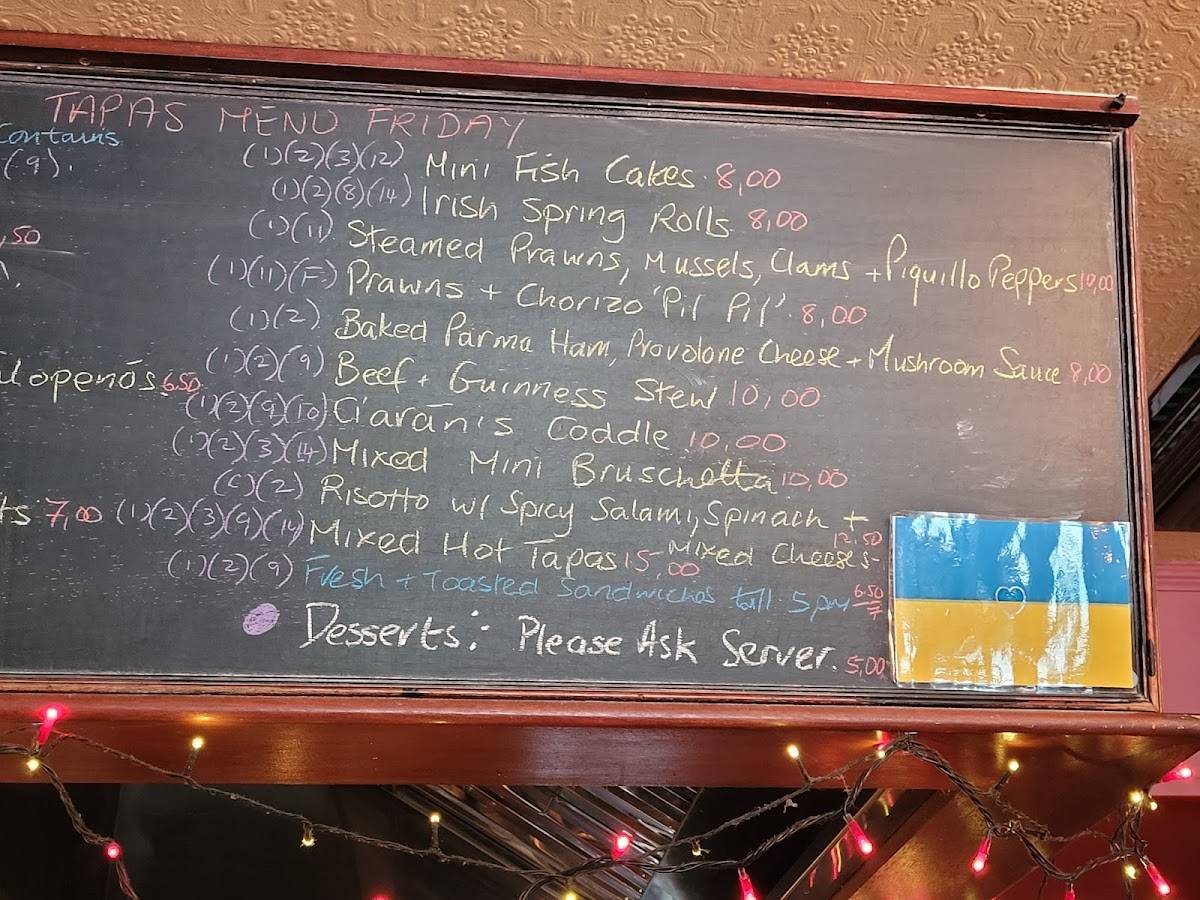 TAPAS MENU FRIDAY
Contains
(9).
(1)(2)(3)(12) Mini Fish Cakes 8,00
(1)(2)(8)(14) Irish Spring Rolls 8,00
,50
(1)(11) Steamed Prawns, Mussels, Clams + Piquillo Peppers 10,00
(1)(11)(F) Prawns + Chorizo 'Pil Pil' 8,00
(1)(2) Baked Parma Ham, Provolone Cheese + Mushroom Sauce 8,00
alopenós 6.50
(1)(2)(9) Beef + Guinness Stew 10,00
(1)(2)(9)(10) Ciarán's Coddle 10,00
(1)(2)(3)(14) Mixed Mini Bruschetta 10,00
(2) Risotto w/ Spicy Salami, Spinach +
Mixed Cheeses 12.50
ts 7,00
(1)(2)(3)(9)(14) Mixed Hot Tapas 15,00
(1)(2)(9) Fresh + Toasted Sandwiches till 5pm 6.50 7
Desserts: Please Ask Server. 5,00